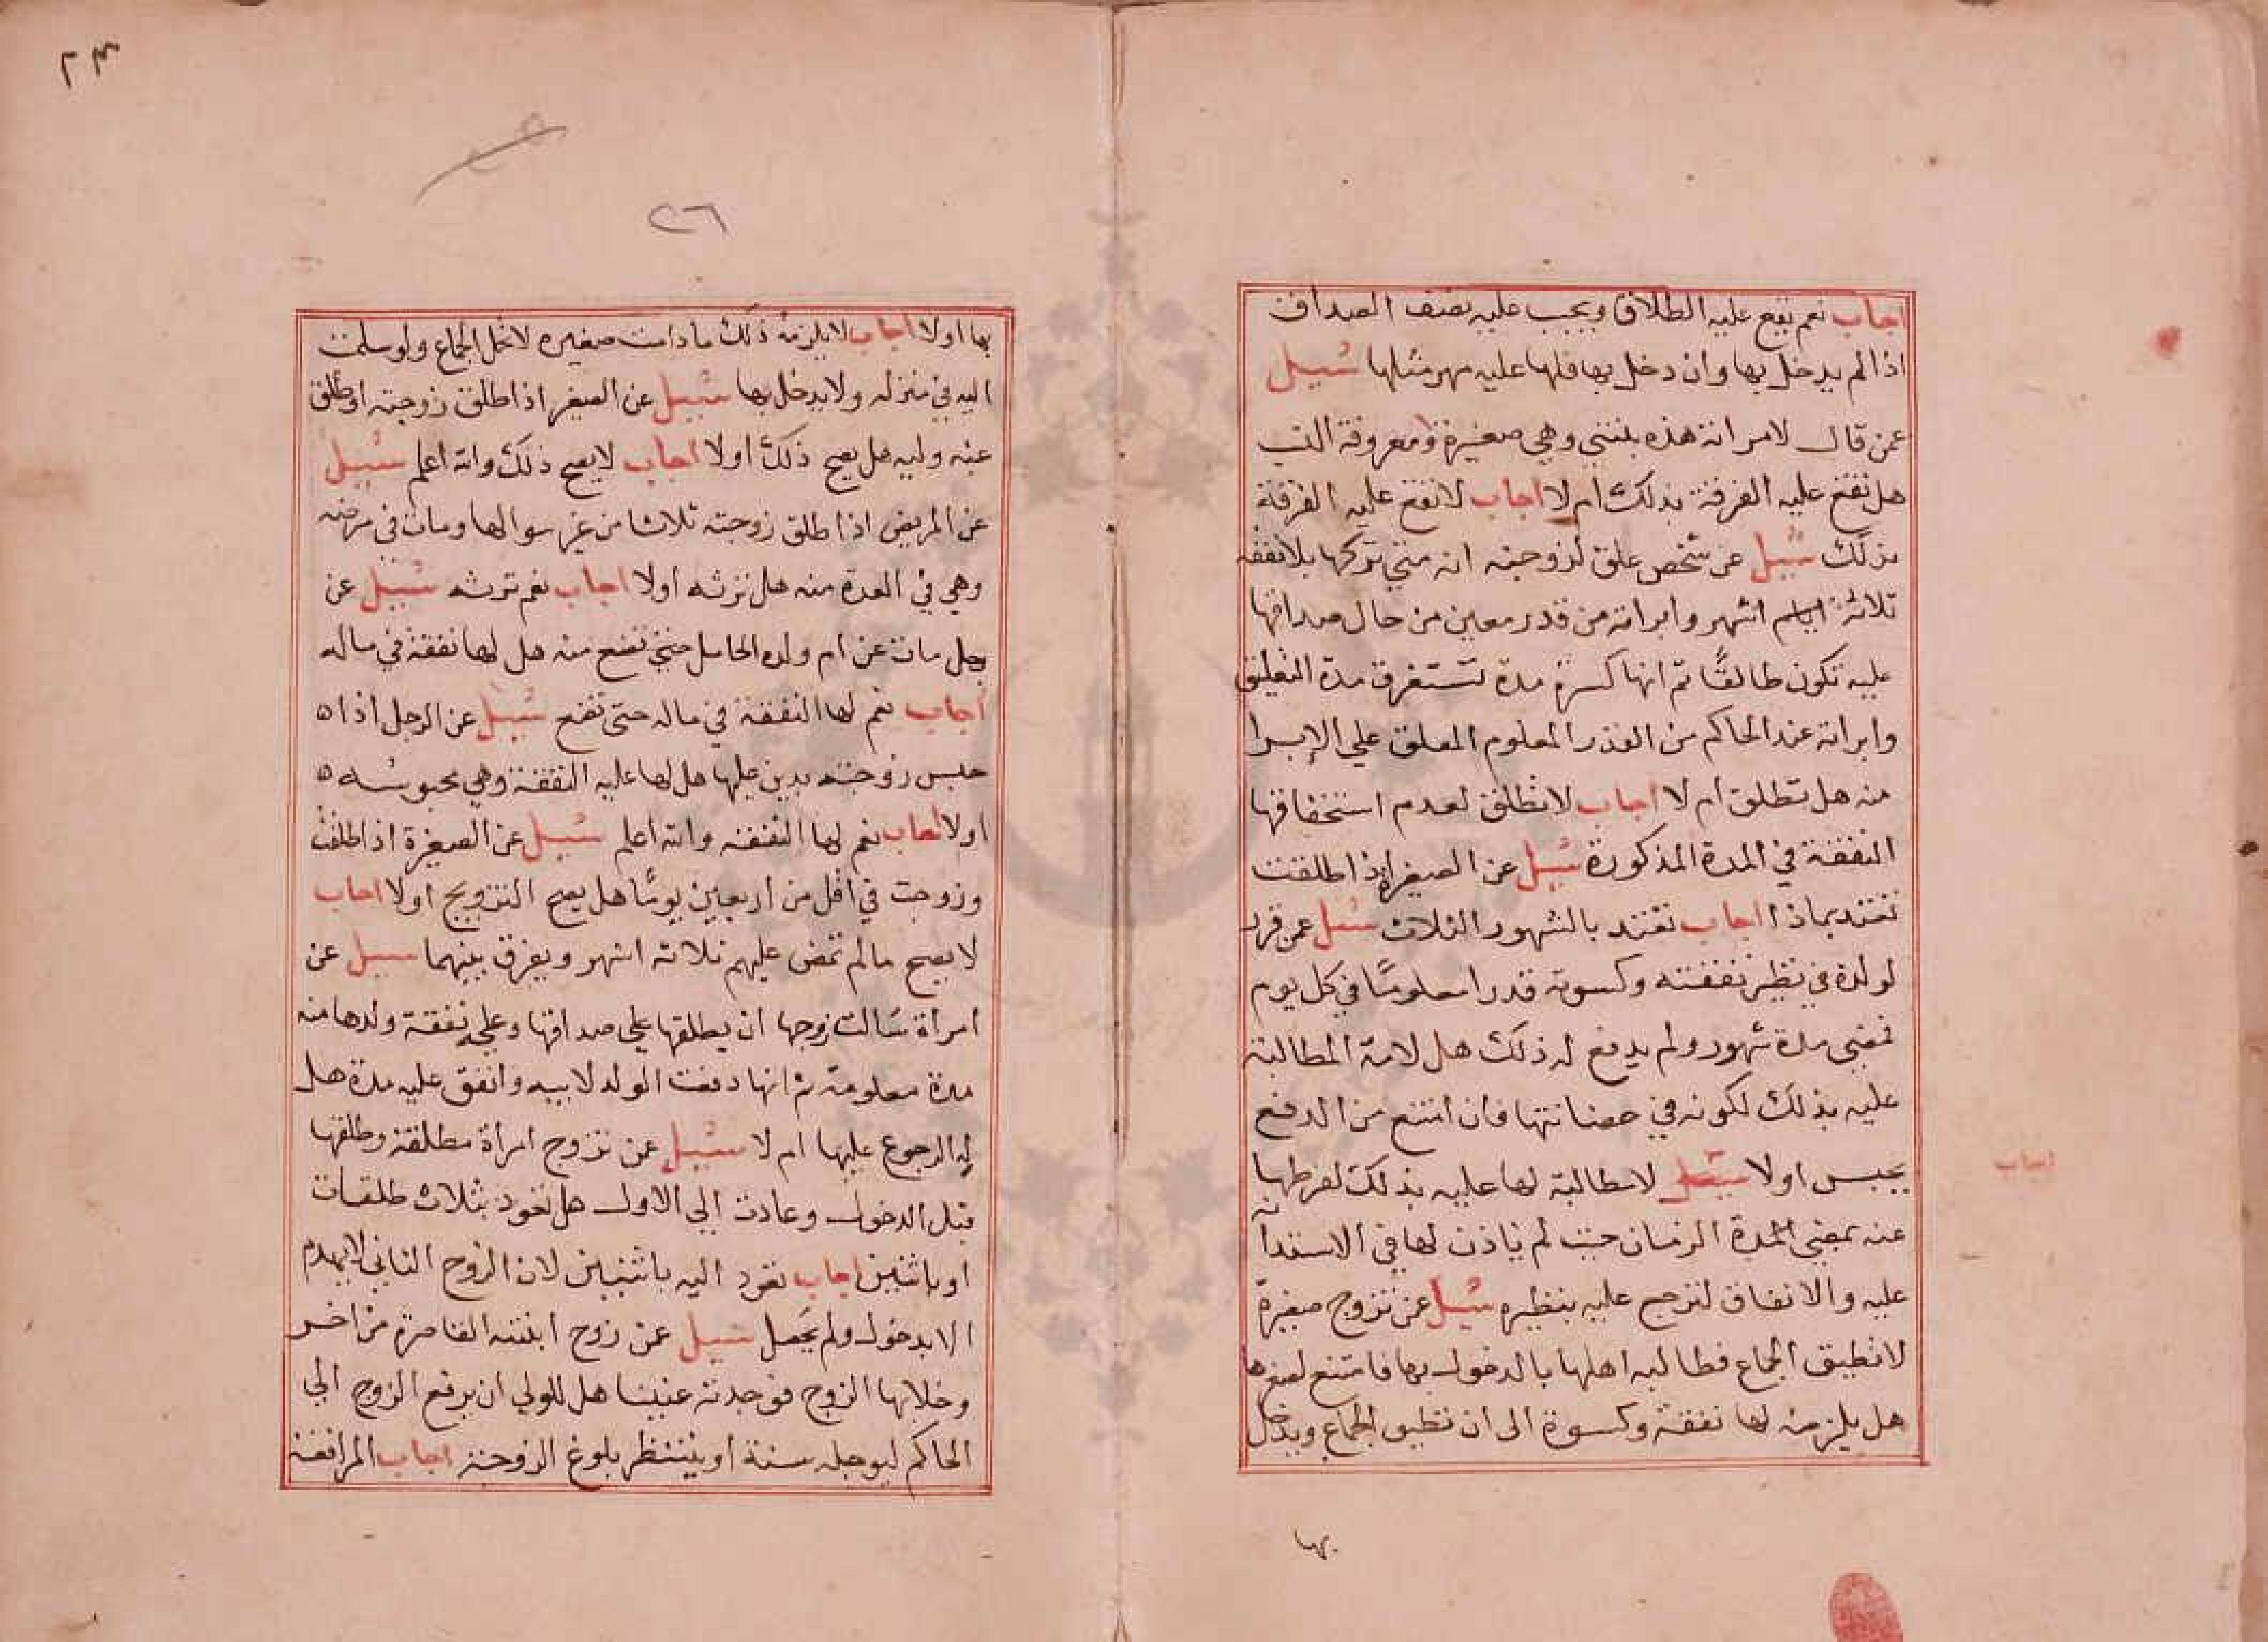 اجاب نعم يقع عليه الطلاق ويجب عليه نصف الصداق
اذا لم يدخل بها وان دخل بها فلها عليه مهر مثلها سئيل
عمن قال لامراته هذه بنتي وهي صغيرة ومعروفة النسب
هل تقع عليه الفرقة بذلك ام لا اجاب لا تقع عليه الفرقة
بذلك سئيل عن شخص علق لزوجته انه متي تركها بلا نفقة
ثلاثة اشهر وابراته من قدر معين من حال صداقها
عليه تكون طالقا ثم انها كسرة مدة تستغرق مدة التعليق
وابراته عند الحاكم من القدر المعلوم المعلق علي الابرا
منه هل تطلق ام لا اجاب لا تطلق لعدم استحقاقها
النفقة في المدة المذكورة سئيل عن الصغيرة اذا طلقت
تعتد بماذا اجاب تعتد بالشهور الثلاث سئل عمن قرر
لولدة في نظير نفقته وكسوته قدرا معلوما في كل يوم
فمضي مدة شهور ولم يدفع له ذلك هل لامه المطالبة
عليه بذلك لكونه في حضانتها فان امتنع من الدفع
يحبس اولا سئيل لا مطالبة لها عليه بذلك لفرطها
اجاب
عنه بمضي المدة الزمان حيث لم ياذن لها في الاستدانة
عليه والانفاق لترجع عليه بنظيره سئيل عن تزوج صغيرة
لا تطيق الجماع فطالبه اهلها بالدخول بها فامتنع لصغرها
هل يلزمه لها نفقة وكسوة الى ان تطيق الجماع ويدخل
بها
٢٣
٢٦
بها اولا اجاب لا يلزمه ذلك ما دامت صغيره لا تحمل الجماع ولو سلمت
اليه في منزله ولا يدخل بها سئيل عن الصغير اذا طلق زوجته او طلق
عنه وليه هل يصح ذلك اولا اجاب لا يصح ذلك والله اعلم سئيل
عن المريض اذا طلق زوجته ثلاثا من غير سوالها ومات في مرضه
وهي في العدة منه هل ترثه اولا اجاب نعم ترثه سئيل عن
رجل مات عن ام ولده الحامل حتي تضع منه هل لها نفقة في ماله
اجاب نعم لها النفقة في ماله حتى تضع سئيل عن الرجل اذا ه
حبس زوجته بدين عليها هل لها عليه النفقة وهي محبوسه ه
اولا اجاب نعم لها النفقه والله اعلم سئيل عن الصغيرة اذا طلقت
وزوجت في اقل من اربعين يوما هل يصح التزويج اولا اجاب
لا يصح مالم تمض عليهم ثلاثة اشهر ويفرق بينهما سئيل عن
امراة سالت زوجها ان يطلقها علي صداقها وعلي نفقة ولدها منه
مدة معلومة ثم انها دفعت الولد لابيه وانفق عليه مدة هل
له الرجوع عليها ام لا سئيل عمن تزوج امراة مطلقة وطلقها
قبل الدخول وعادت الي الاول هل تعود بثلاث طلقات
او باثنتين اجاب تعود اليه باثنتين لان الزوج الثاني لا يهدم
الا بدخول ولم يحصل سئيل عن زوج ابنته القاصرة من اخر
وخلا بها الزوج فوجدته عنينا هل للولي ان يرفع الزوج الي
الحاكم ليوجله سنة او ينتظر بلوغ الزوجة اجاب المرافعة